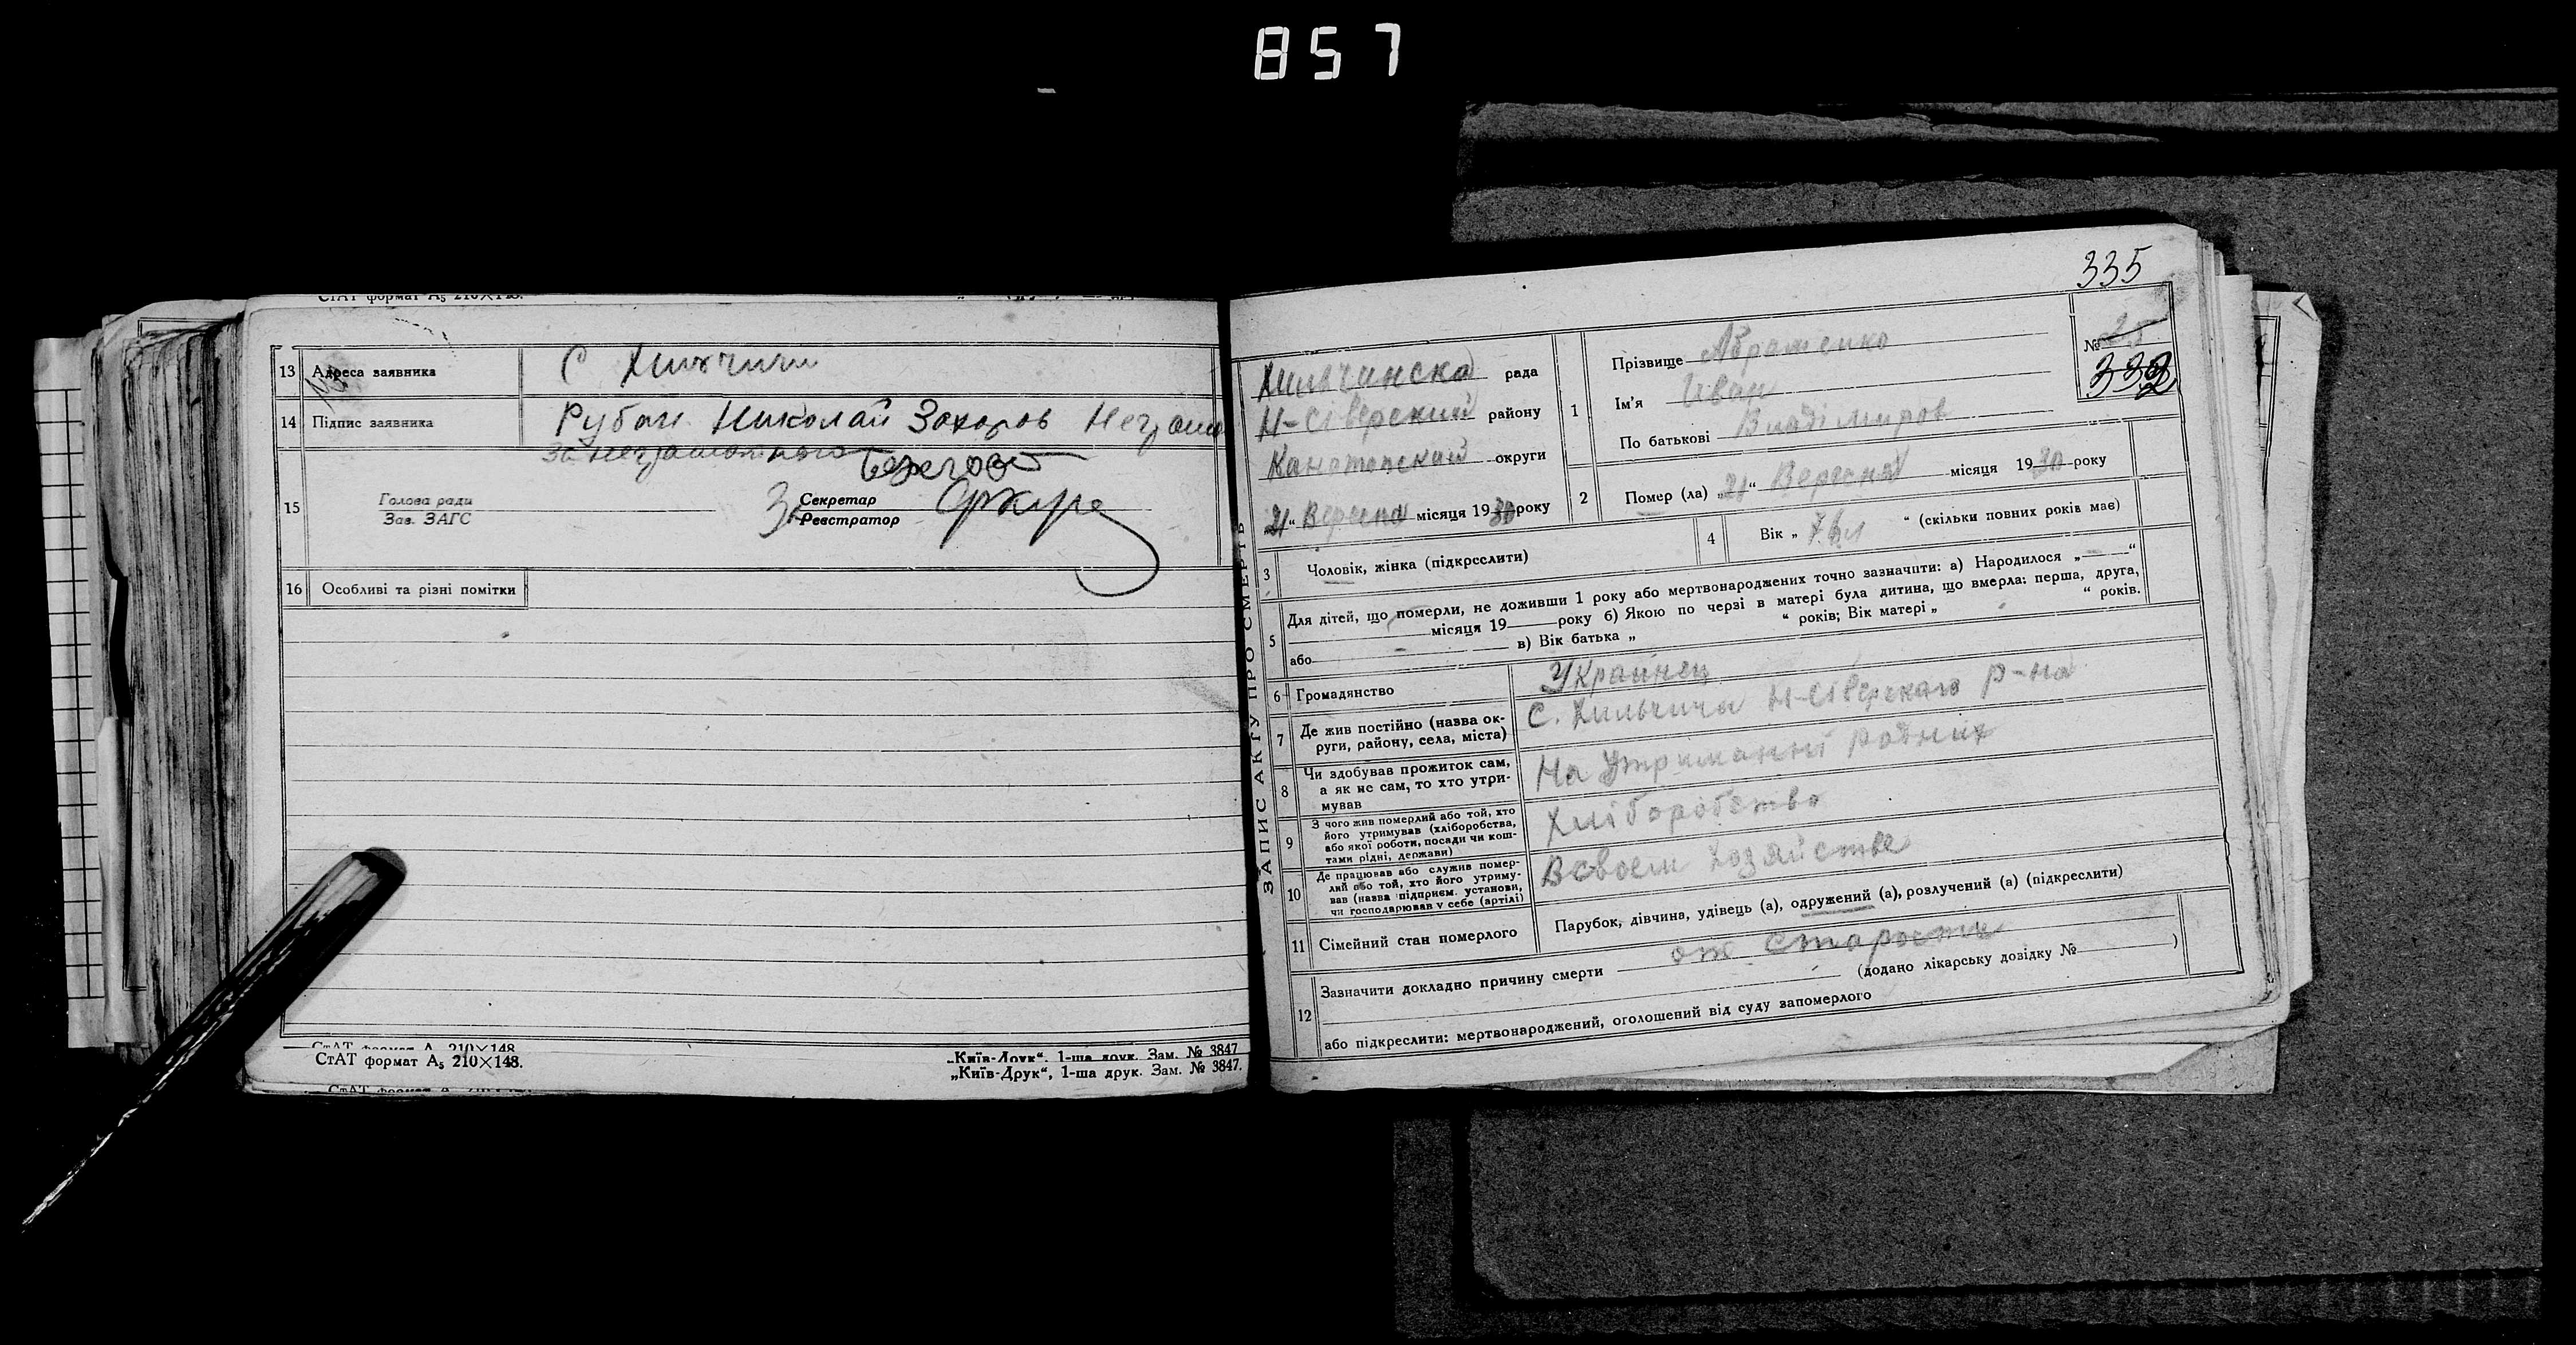 857
СтАТ формат А5 210×148.
13 Адреса заявника С Хильчичи
14 Підпис заявника Рубан Николай Захоров Неграм
за неграмотного
15 Голова ради
Зав. ЗАГС
Секретар
Реєстратор
16 Особливі та різні помітки
СтАТ формат А5 210×148.
„Київ-Друк“, 1-ша друк. Зам. № 3847
СтАТ формат А5 210×148.
„Київ-Друк“, 1-ша друк. Зам. № 3847.
335
ЗАПИС АКТУ ПРО СМЕРТЬ
Хильчинска рада
Н-Сіверский район у
Канотопский округи
21“ Вересня місяця 1930 року
№ 25
332
1 Прізвище Абраменко
Ім’я Иван
По батькові Владімиров
2 Помер (ла) „21“ Вересня місяця 1930 року
3 Чоловік, жінка (підкреслити)
4 Вік „ 76 л “ (скільки повних років має)
5 Для дітей, що померли, не доживши 1 року або мертвонароджених точно зазначити: а) Народилося „ “
місяця 19 року б) Якою по черзі в матері була дитина, що вмерла: перша, друга,
або в) Вік батька „ “ років; Вік матері „ “ років.
6 Громадянство Украинец
7 Де жив постійно (назва округи, району, села, міста) С. Хильчичи Н-Сіверскаго р-на
8 Чи здобував прожиток сам,
а як не сам, то хто утри-
мував На утриманні родных
9 З чого жив померлий або той, хто
його утримував (хліборобства,
або якої роботи, посади чи кош-
тами рідні, держави) Хліборобство
10 Де працював або служив помер-
лий або той, хто його утриму-
вав (назва підприєм. установи,
чи господарював у себе (артілі) В своем хозяйстве
11 Сімейний стан померлого Парубок, дівчина, удівець (а), одружений (а), розлучений (а) (підкреслити)
12 Зазначити докладно причину смерти от старости
(додано лікарську довідку № )
або підкреслити: мертвонароджений, оголошений від суду запомерлого